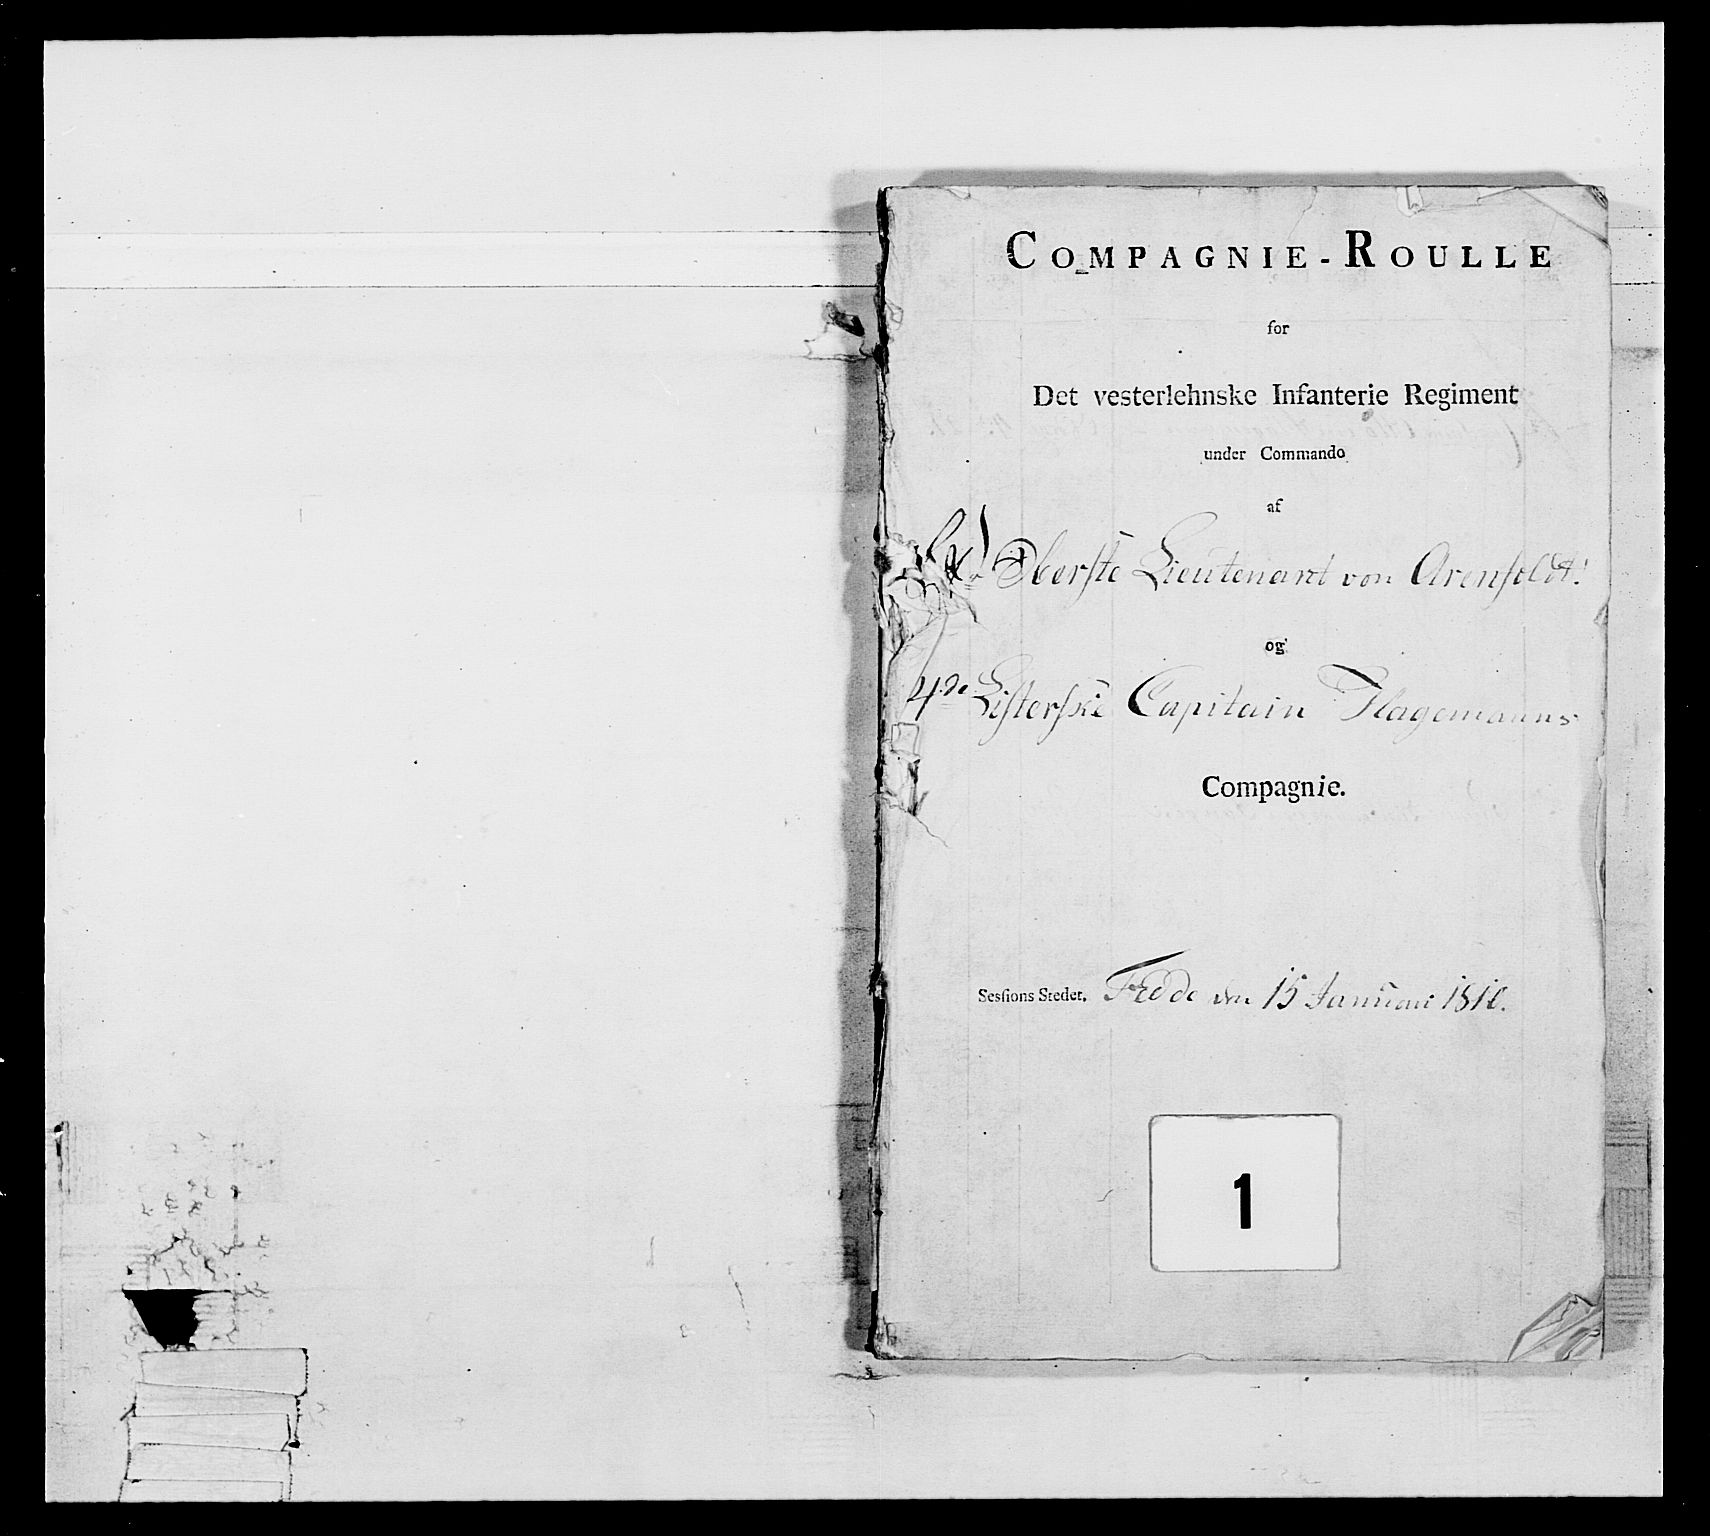 COMPAGNIE-ROULLE
for
Det vesterlehnske Infanterie Regiment
under Commando
af
Oberste Lieutenant von Arenfeldt!
og
4de Listerske Capitain Hagemanns
Compagnie.
Sessions Stedet, Fedde den 15 Januari
1